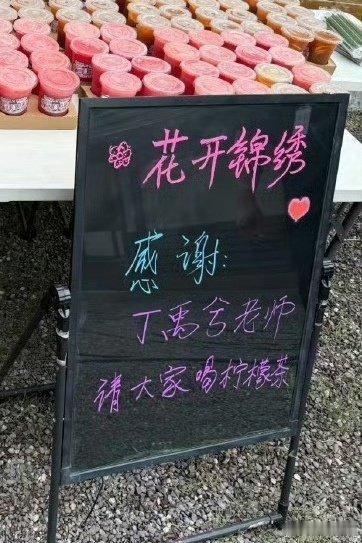 花开锦绣
感谢:
丁禹兮老师
请大家喝柠檬茶